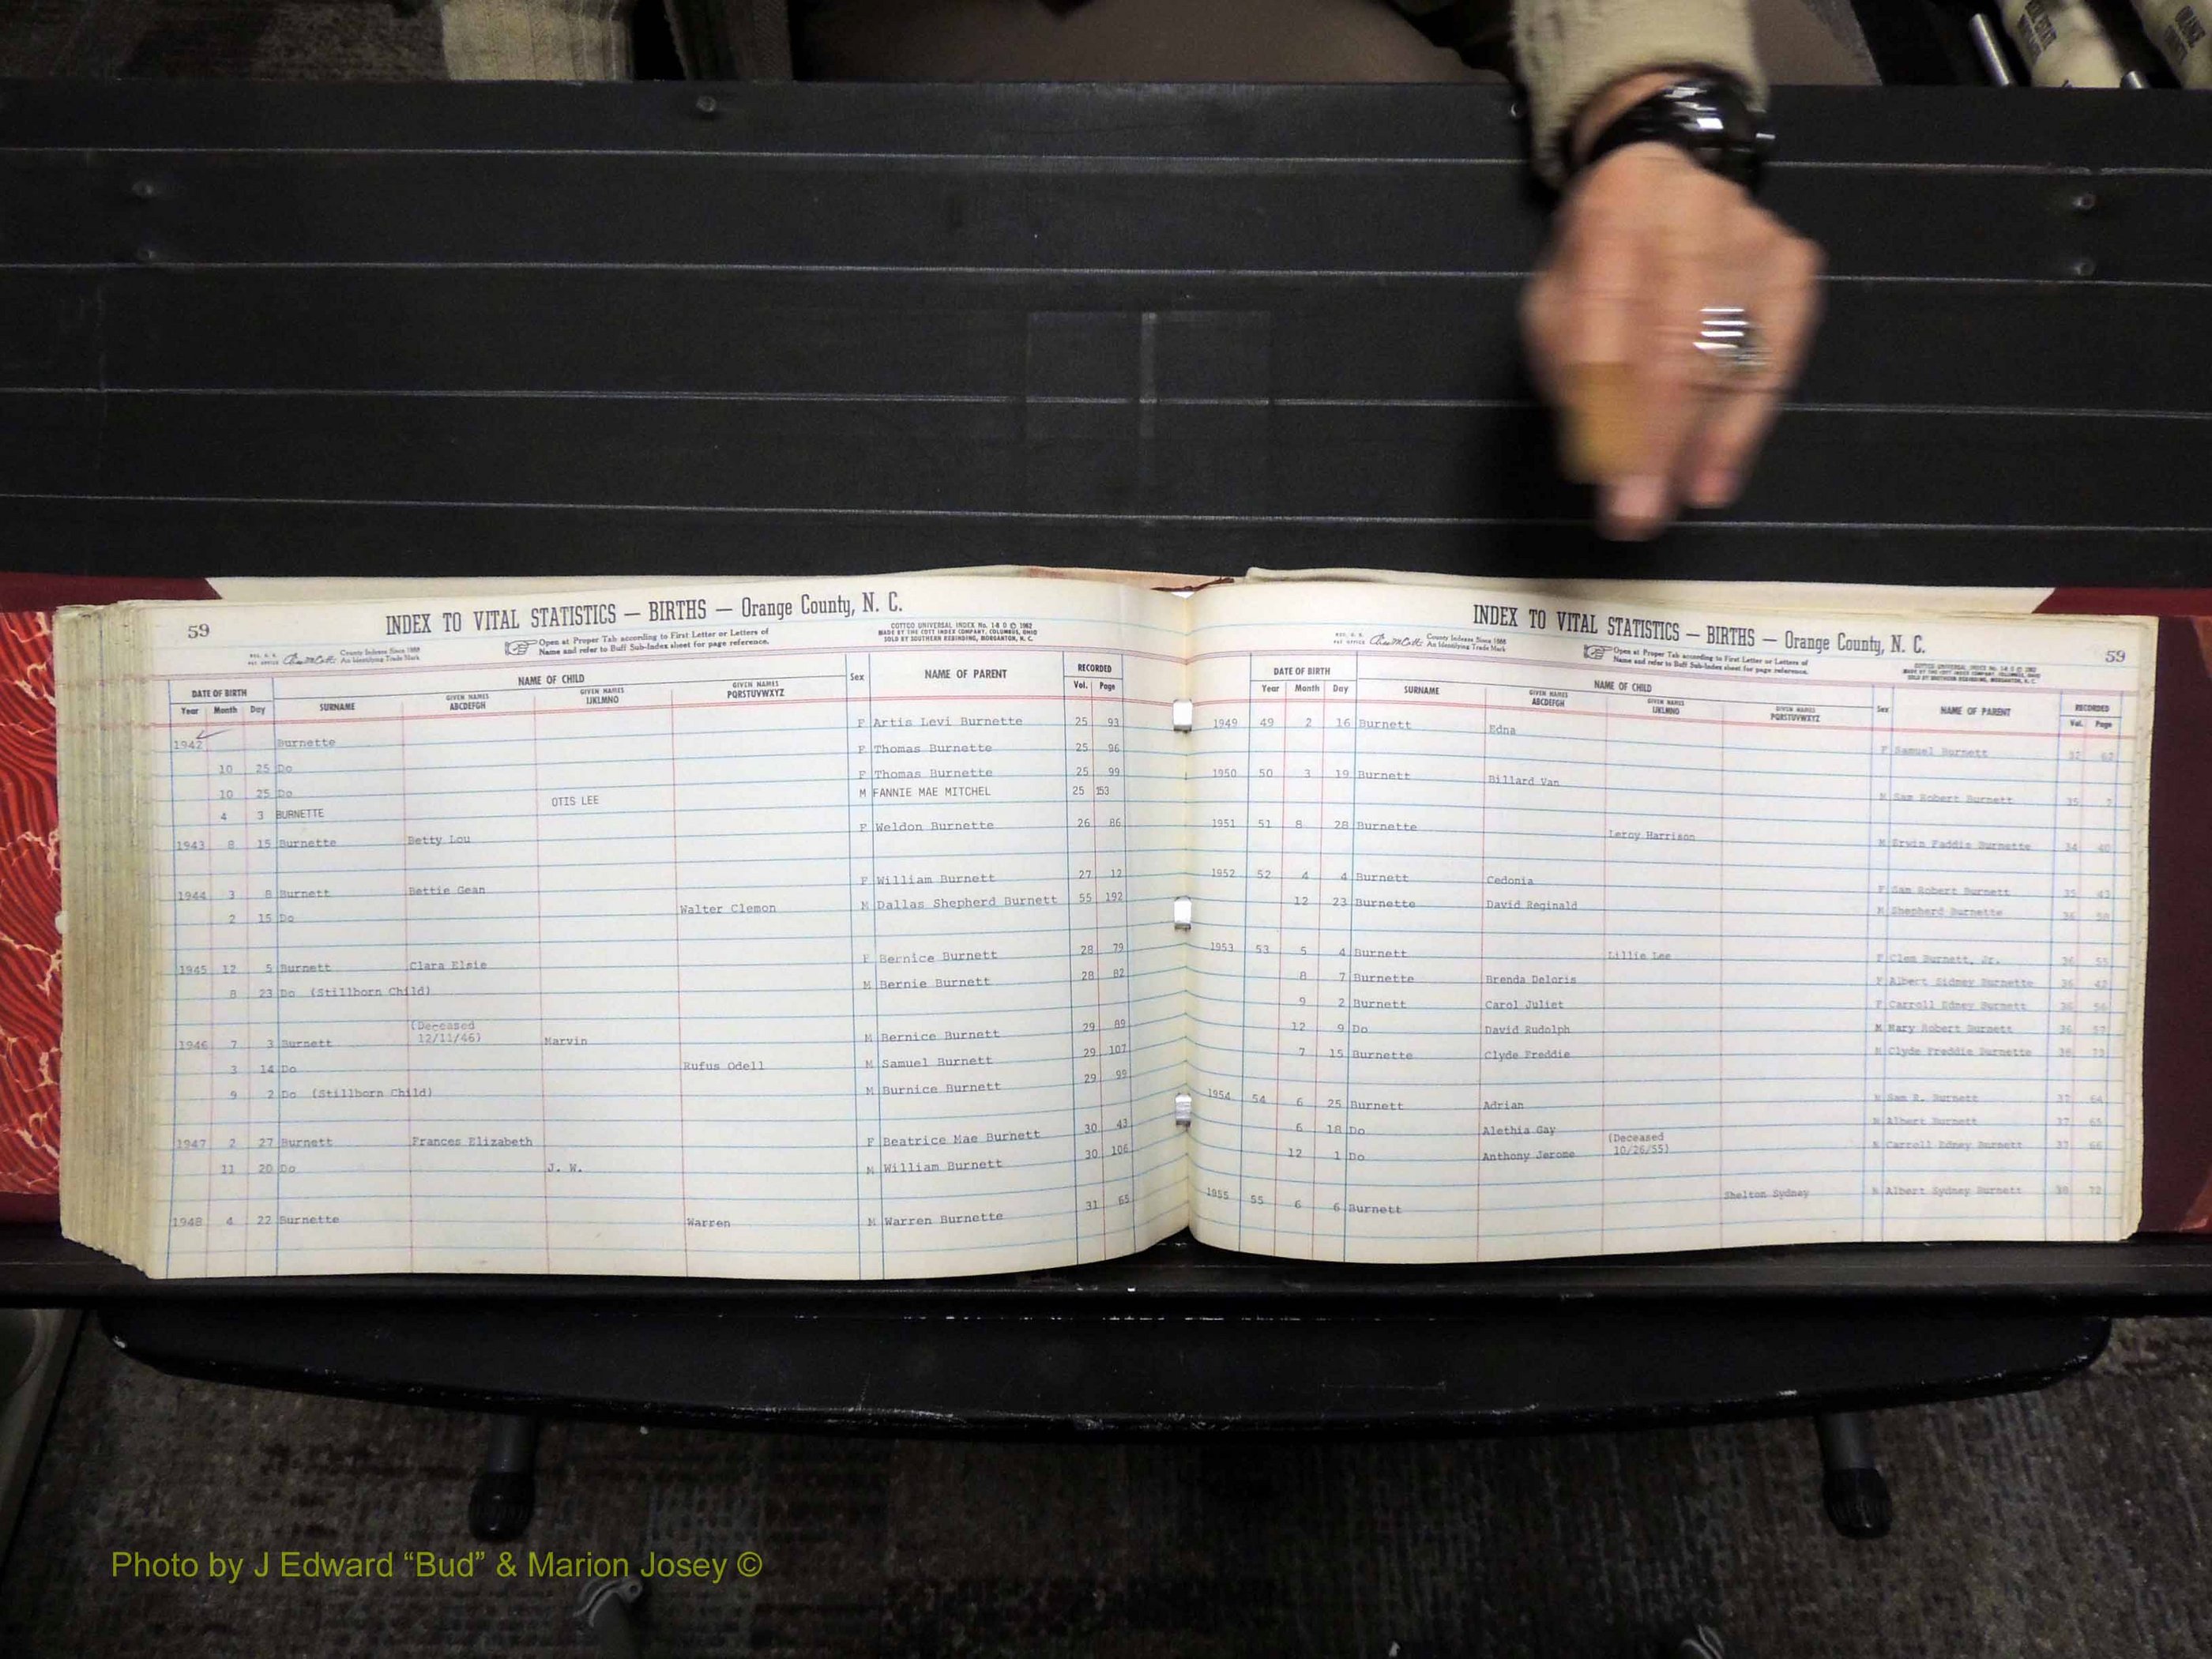 59
INDEX TO VITAL STATISTICS — BIRTHS — Orange County, N. C.
County Indexes Since 1888
An Identifying Trade Mark
Open at Proper Tab according to First Letter or Letters of
Name and refer to Buff Sub-Index sheet for page reference.
COTTCO UNIVERSAL INDEX No. 14 D © 1962
MADE BY THE COTT INDEX COMPANY, COLUMBUS, OHIO
SOLD BY SOUTHERN REBINDING, MORGANTON, N. C.
DATE OF BIRTH NAME OF CHILD Sex NAME OF PARENT RECORDED
Year Month Day SURNAME GIVEN NAMES ABCDEFGH GIVEN NAMES IJKLMNO GIVEN NAMES PQRSTUVWXYZ Vol. Page
1942 Burnette F Artis Levi Burnette 25 93
10 25 Do F Thomas Burnette 25 96
10 25 Do F Thomas Burnette 25 99
4 3 BURNETTE OTIS LEE M FANNIE MAE MITCHEL 25 153
1943 8 15 Burnette Betty Lou F Weldon Burnette 26 86
1944 3 8 Burnett Bettie Gean F William Burnett 27 12
2 15 Do Walter Clemon M Dallas Shepherd Burnett 55 192
1945 12 5 Burnett Clara Elsie F Bernice Burnett 28 79
8 23 Do (Stillborn Child) M Bernie Burnett 28 82
1946 7 3 Burnett (Deceased 12/11/46) Marvin M Bernice Burnett 29 89
3 14 Do Rufus Odell M Samuel Burnett 29 107
9 2 Do (Stillborn Child) M Burnice Burnett 29 99
1947 2 27 Burnett Frances Elizabeth F Beatrice Mae Burnett 30 43
11 20 Do J. W. M William Burnett 30 106
1948 4 22 Burnette Warren M Warren Burnette 31 65
INDEX TO VITAL STATISTICS — BIRTHS — Orange County, N. C.
59
County Indexes Since 1888
An Identifying Trade Mark
Open at Proper Tab according to First Letter or Letters of
Name and refer to Buff Sub-Index sheet for page reference.
DATE OF BIRTH NAME OF CHILD Sex NAME OF PARENT RECORDED
Year Month Day SURNAME GIVEN NAMES ABCDEFGH GIVEN NAMES IJKLMNO GIVEN NAMES PQRSTUVWXYZ Vol. Page
1949 49 2 16 Burnett Edna F Samuel Burnett
1950 50 3 19 Burnett Billard Van M Sam Robert Burnett 35
1951 51 8 28 Burnette Leroy Harrison M Erwin Faddis Burnette 34 40
1952 52 4 4 Burnett Cedonia F Sam Robert Burnett 35 43
12 23 Burnette David Reginald M Shepherd Burnette 36
1953 53 5 4 Burnett Lillie Lee F Clem Burnett, Jr. 36 55
8 7 Burnette Brenda Deloris F Albert Sidney Burnette 36
9 2 Burnett Carol Juliet F Carroll Edney Burnett 36 56
12 9 Do David Rudolph M Mary Robert Burnett 36 57
7 15 Burnette Clyde Freddie M Clyde Freddie Burnette 36
1954 54 6 25 Burnett Adrian M Sam R. Burnett 37 64
6 18 Do Alethia Gay Albert Burnett 37 65
12 1 Do Anthony Jerome (Deceased 10/26/55) M Carroll Edney Burnett 37 66
1955 55 6 6 Burnett Shelton Sydney M Albert Sydney Burnett 38 72
Photo by J Edward “Bud” & Marion Josey ©